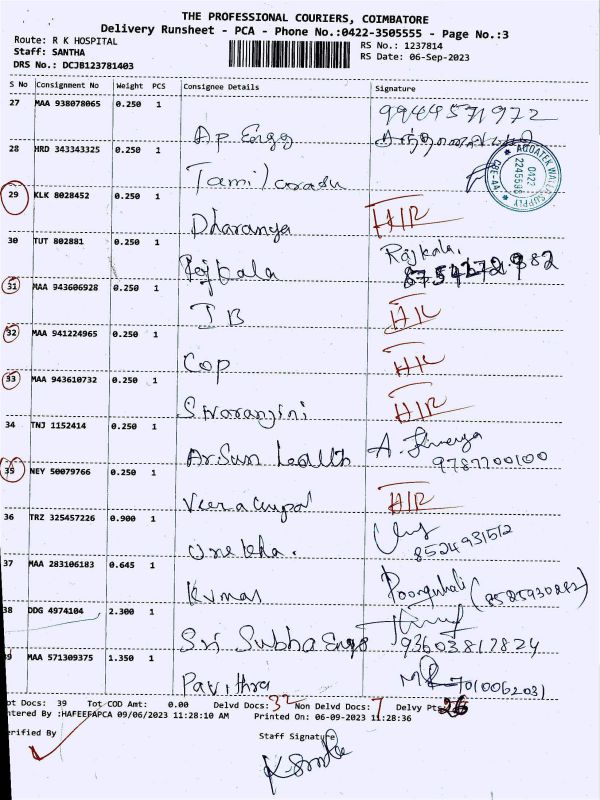 THE PROFESSIONAL COURIERS, COIMBATORE
Delivery Runsheet - PCA - Phone No.:0422-3505555 - Page No.:3
Route: R K HOSPITAL
Staff: SANTHA
DRS No.: DCJB123781403
RS No.: 1237814
RS Date: 06-Sep-2023
S No Consignment No Weight PCS Consignee Details Signature
27 MAA 938078065 0.250 1 Ap Engg 9944571972
28 HRD 343343325 0.250 1 Tamilarasu AQUATEK WALL SUPPLY 0422 2245598 CBE-44
29 KLK 8028452 0.250 1 Dharanya H/R
30 TUT 802881 0.250 1 Rajkala Rajkala.
31 MAA 943606928 0.250 1 J B H/R
32 MAA 941224965 0.250 1 Cop H/R
33 MAA 943610732 0.250 1 Sivaranjini H/R
34 TNJ 1152414 0.250 1 Arsun health 9787700100
35 NEY 50079766 0.250 1 H/R
36 TRZ 325457226 0.900 1 8524931512
37 MAA 283106183 0.645 1 Kumar
38 DDG 4974104 2.300 1 Sri Subha Engg 93603817824
MAA 571309375 1.350 1 Pavithra 7010062031
ot Docs: 39 Tot COD Amt: 0.00 Delvd Docs: 32 Non Delvd Docs: 7 Delvy Pts 26
ntered By :HAFEEFAPCA 09/06/2023 11:28:10 AM Printed On: 06-09-2023 11:28:36
erified By Staff Signature